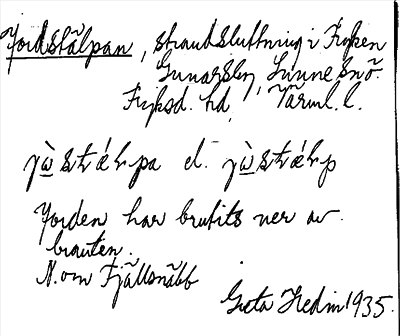 Jordstälpan, strandsluttning i Fryken
Gunarsby, Sunne Snö.
Fryksd. hd, Värml. l.
jɷ̀stálpa el. jɷ̀stálp
Jorden har brutits ner av
branten.
N. om Fjällsnäbb
Greta Hedin 1935.